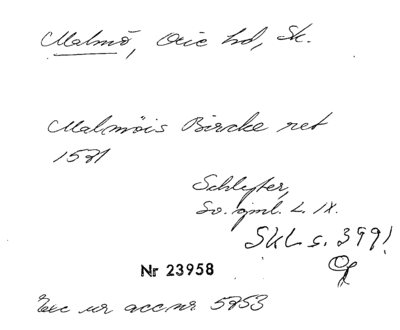 Malmö, Oxie hd, Sk.
Malmöis Bircke ret
15
Schlyter,
Sv. gml. L. IX.
SkL s. 399!
Nr 23958
Exc ur acc.nr 5253